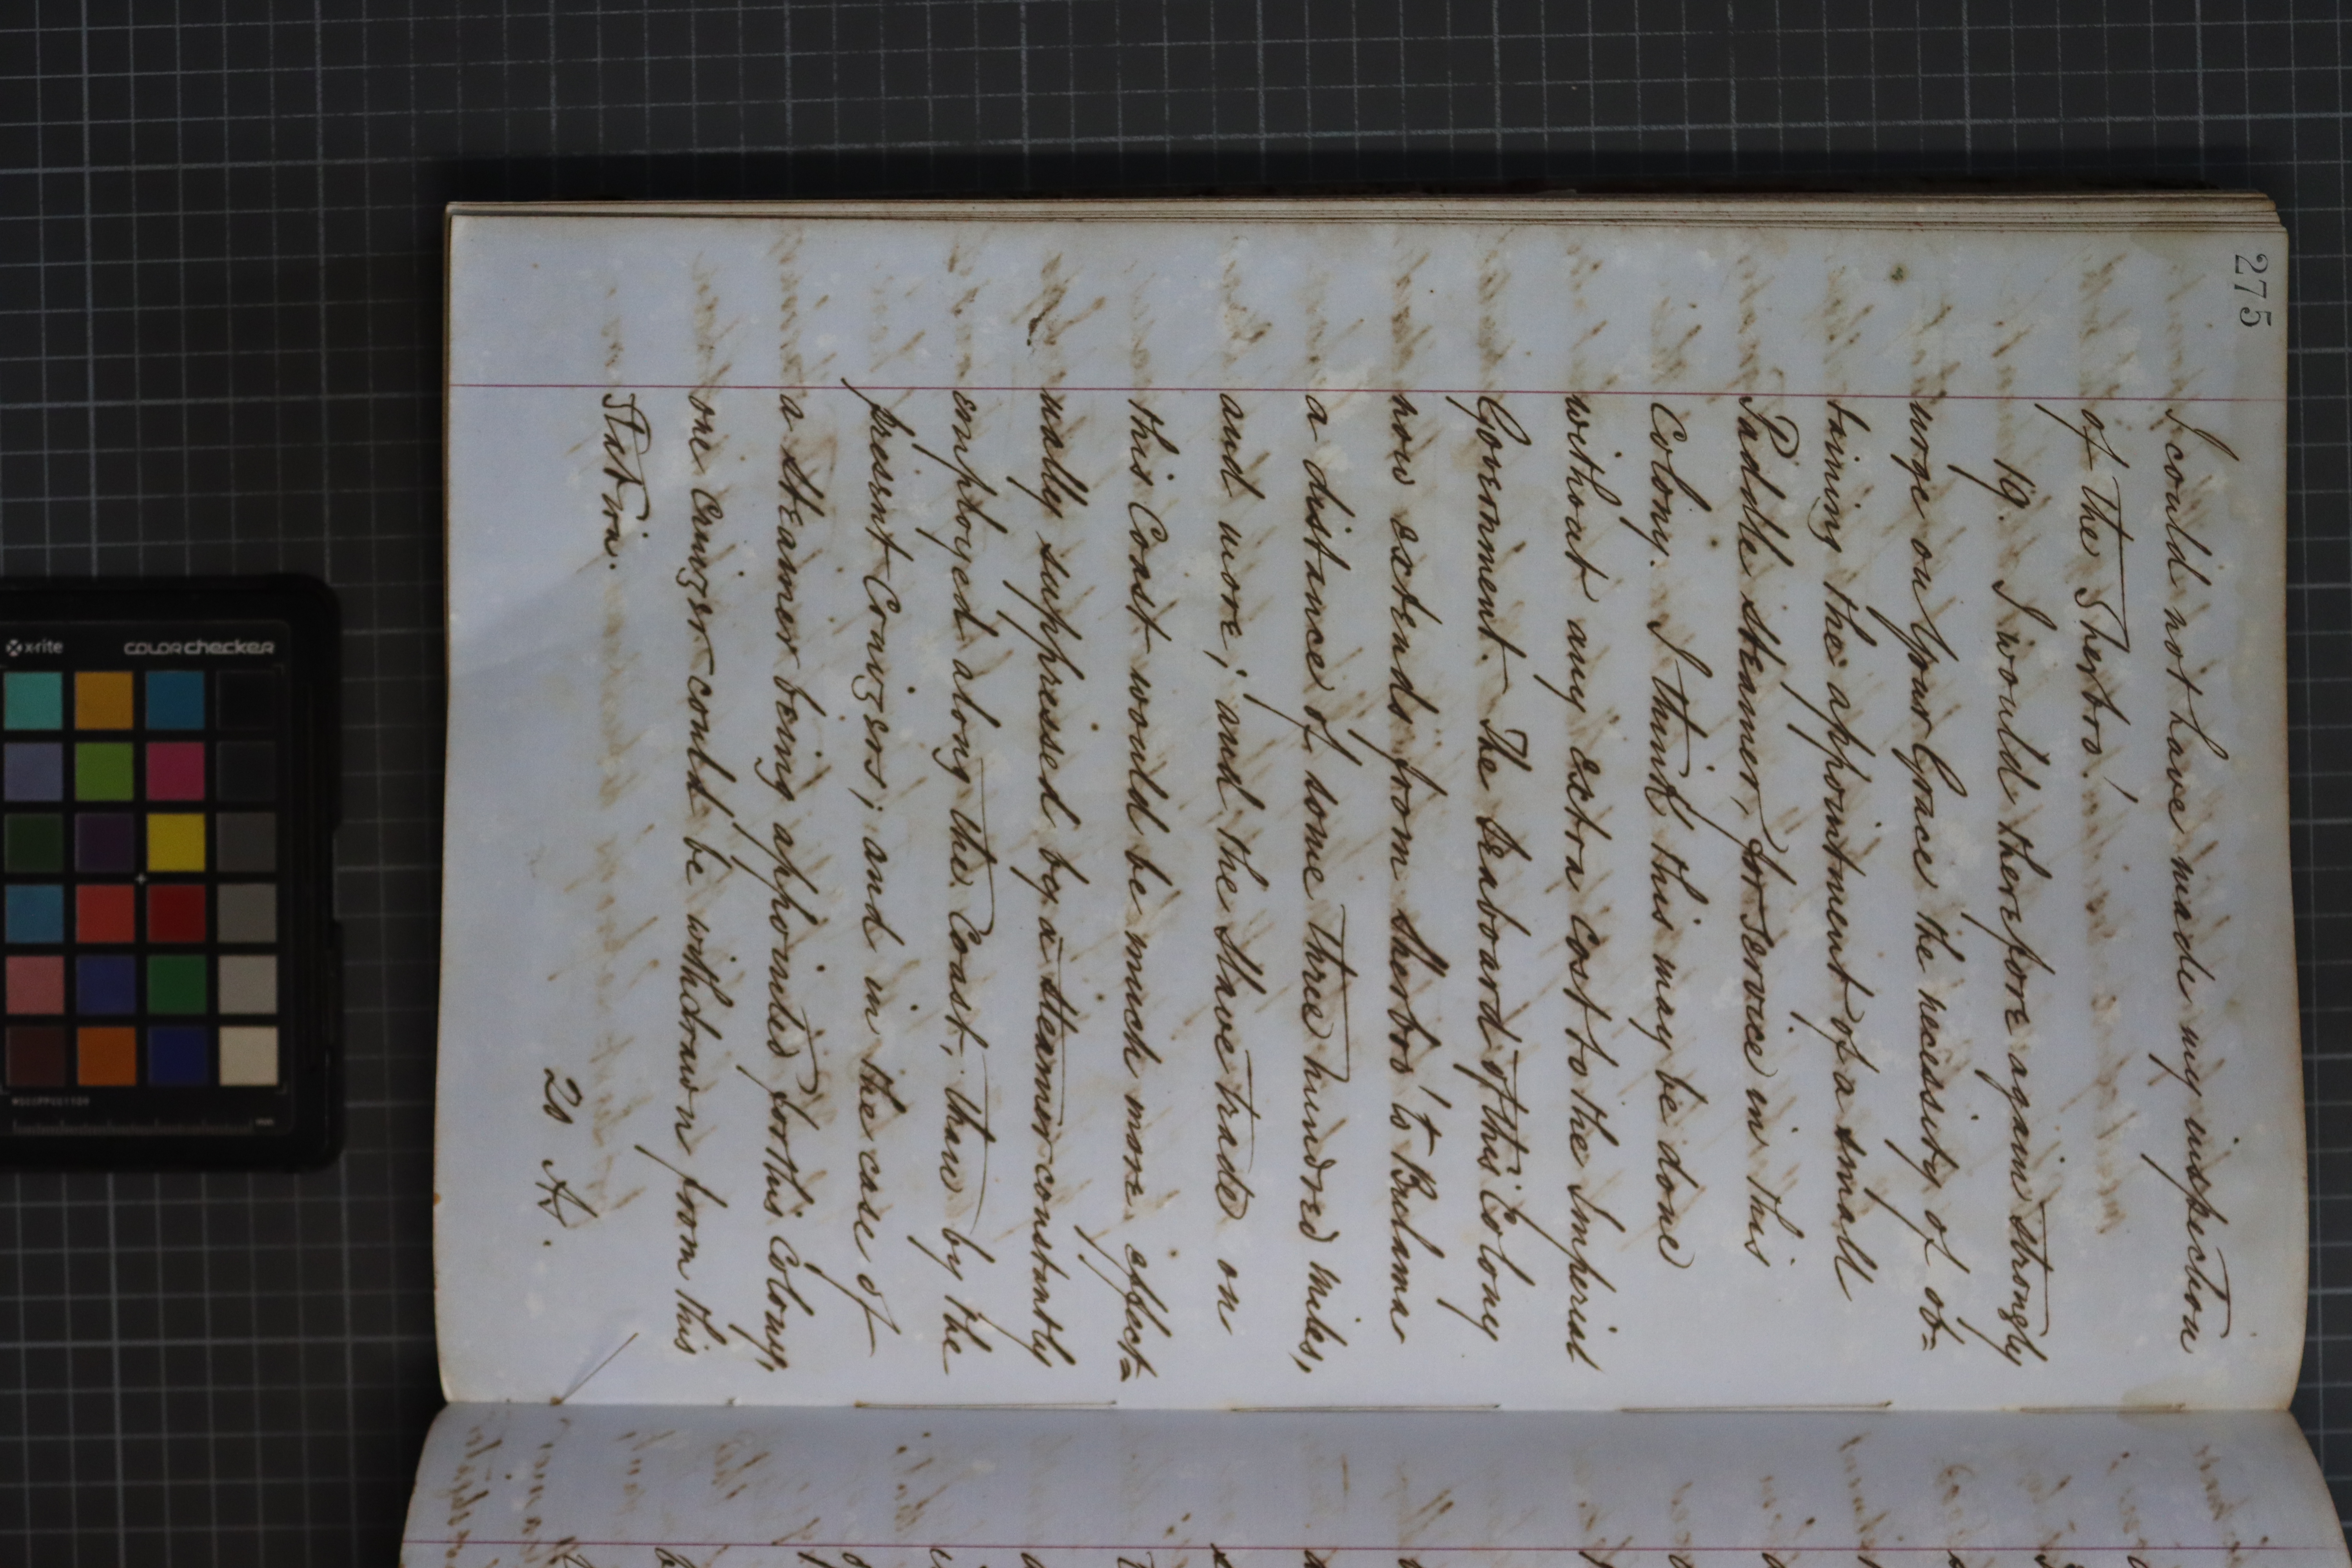 275
I could not have made my inspection
of the Sherbro'.
19. I would therefore again strongly
urge on Your Grace the necessity of ob=
taining the appointment of a small
Paddle steamer, for service in this
Colony. I think this may be done
without any extra cost to the Imperial
Government. The Seaboard of this Colony
now extends from Sherbro' to Bulama
a distance of some three hundred miles,
and more; and the Slave trade on
this Coast would be much more effect=
ually suppressed by a steamer constantly
employed along the Coast, than by the
present Cruizers; and in the case of
a steamer being appointed for this Colony,
one Cruizer could be withdrawn from this
Station.
20
x-rite
colorchecker